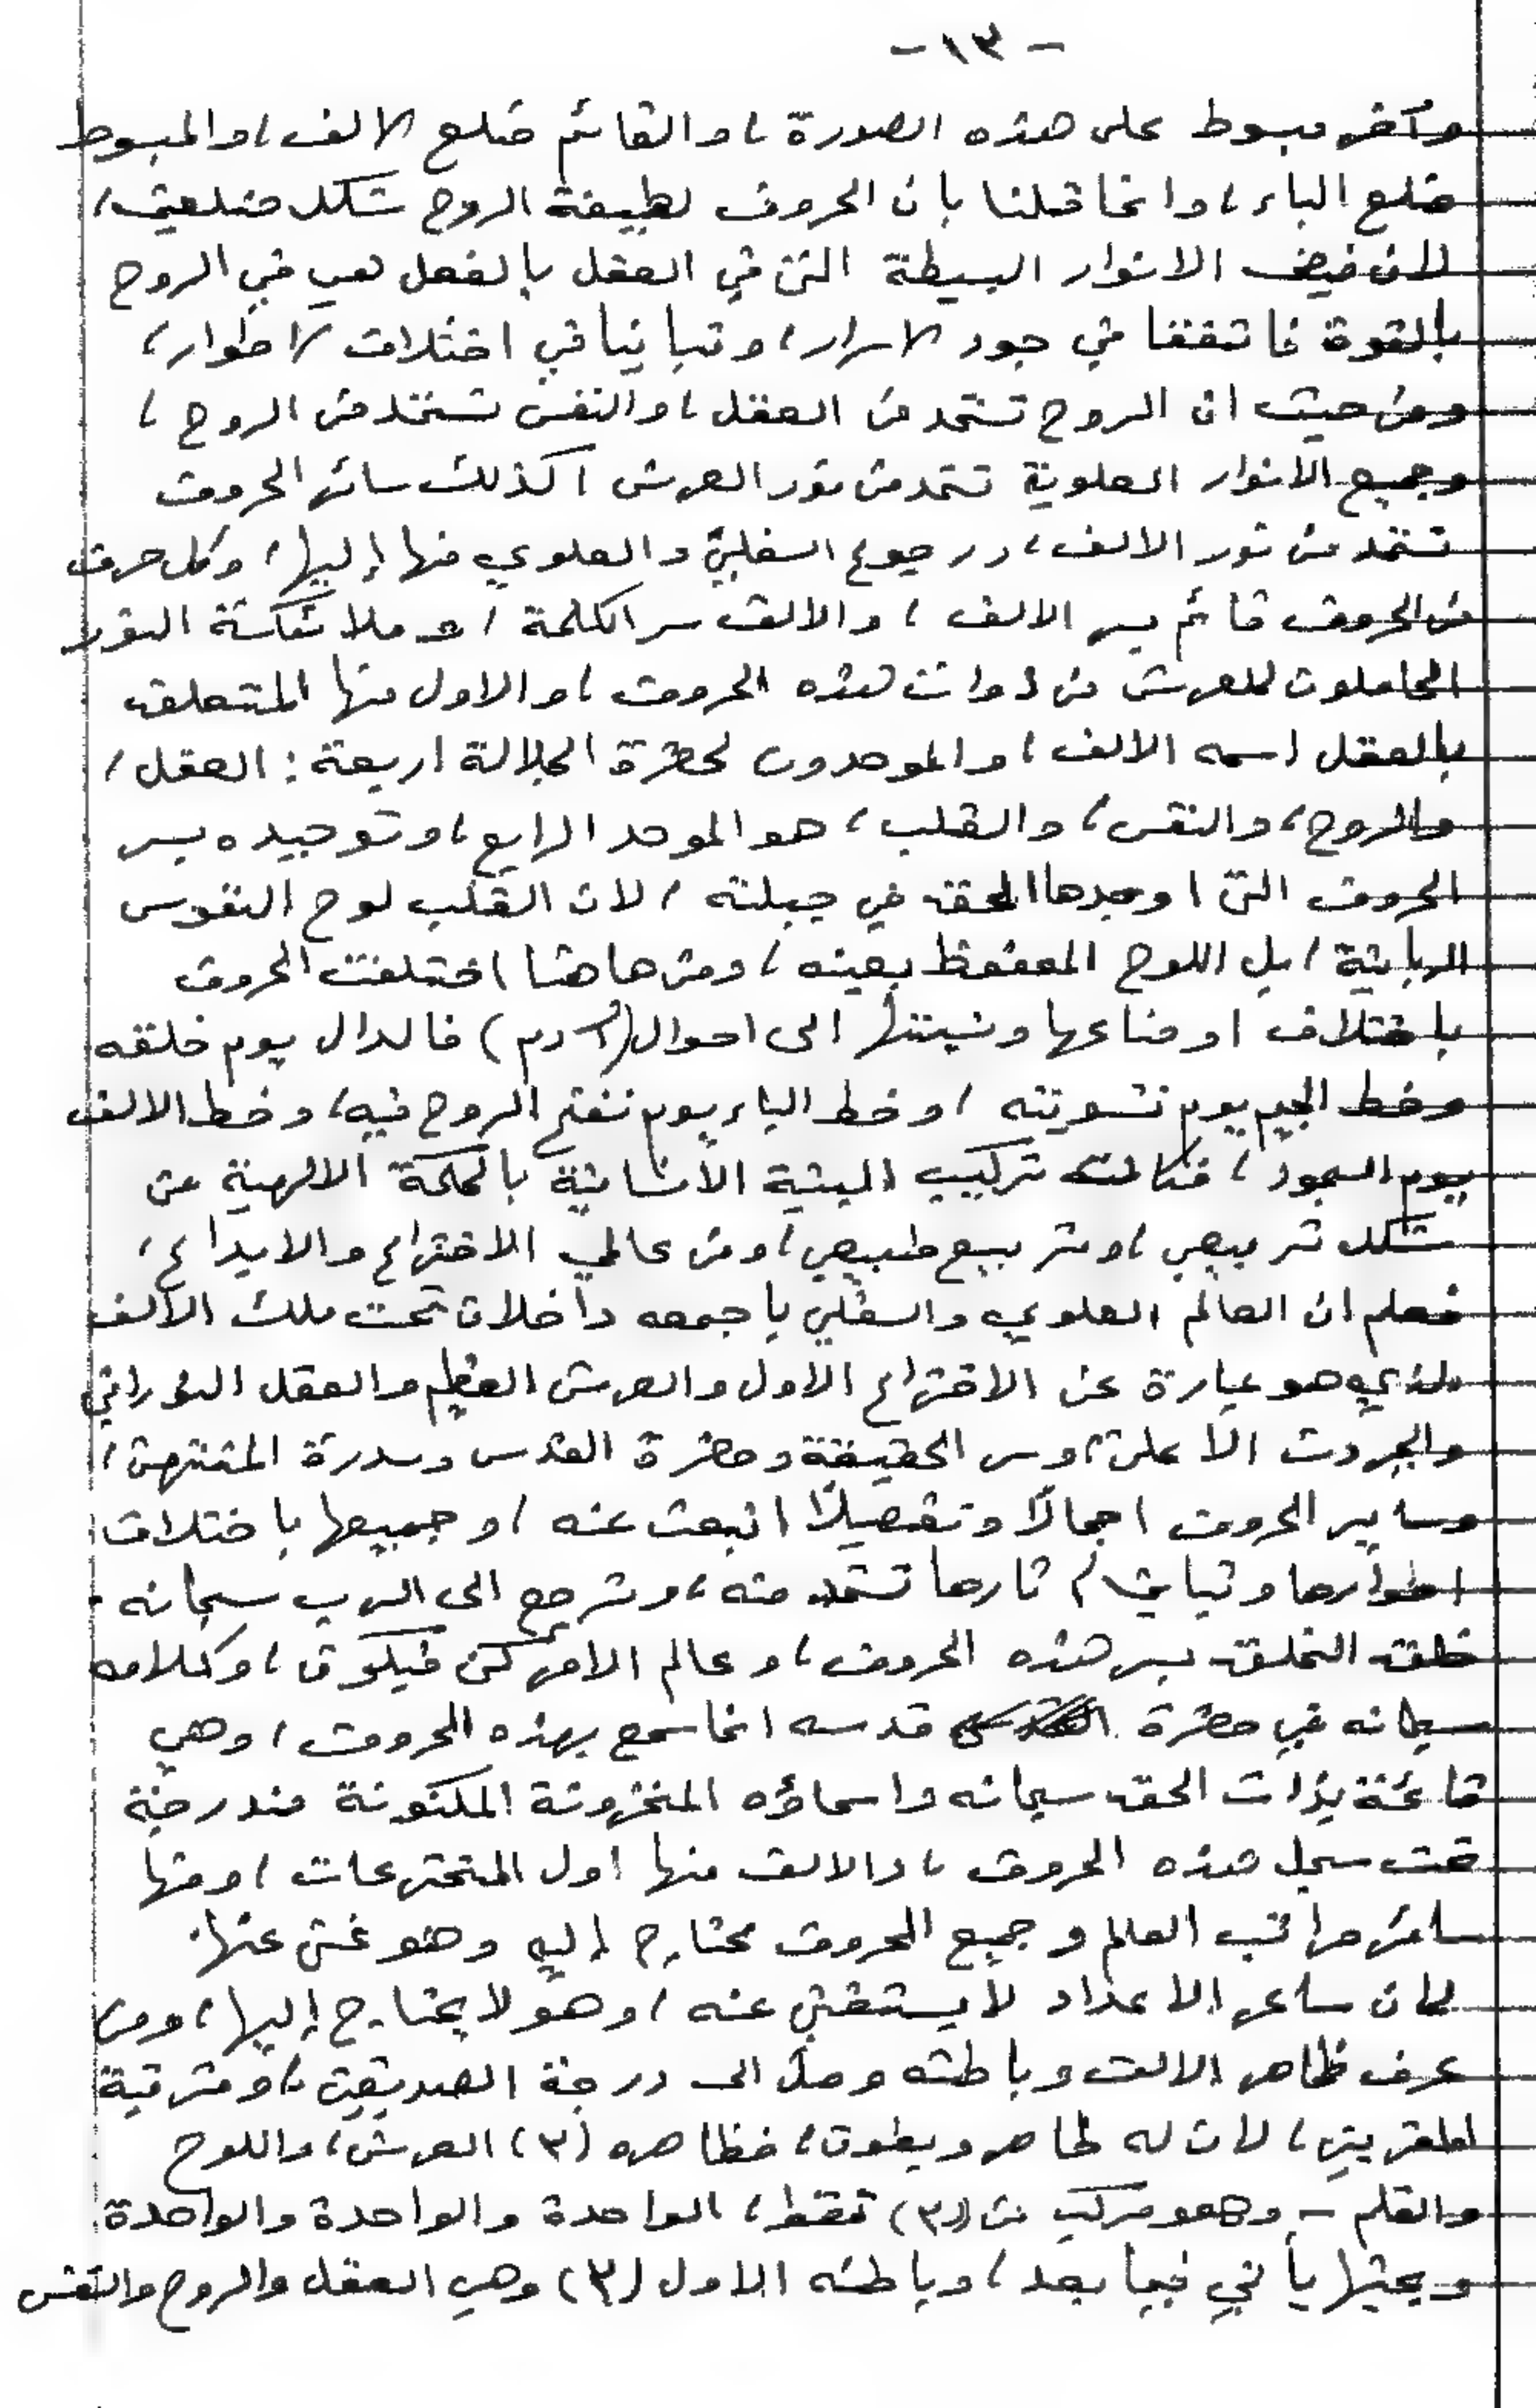 - ١٣ -
وآخر مبسوط على هذه الصورة ، والقائم ضلع الالف ، والمبسوط
ضلع الباء ، وانما قلنا بان الحروف لطبيعة الروح شكل ضلعين ،
لان فيض الانوار البسيطة التي في العقل بالفعل هي في الروح
بالقوة فاتفقا في جود الاسرار ، وتباينا في اختلاف الاطوار ،
ومن حيث ان الروح تستمد من العقل ، والنفس تستمد من الروح ،
وجميع الانوار العلوية تستمد من نور العرش ، كذلك سائر الحروف
تستمد من نور الالف ، ورجوع السفلي والعلوي منها إليها ، وكل حرف
من الحروف قائم بسر الالف ، والالف سر الكلمة ، وملائكة النور
الحاملون للعرش من ذوات هذه الحروف ، والاول منها المتعلق
بالعقل اسمه الالف ، والموحدون لحضرة الجلالة اربعة : العقل ،
والروح ، والنفس ، والقلب ، هو الموحد الرابع ، وتوحيده بسر
الحروف التي اوجدها الحق في جبلته ، لان القلب لوح النفوس
الربانية ، بل اللوح المحفوظ بعينه ، ومن هاهنا اختلفت الحروف
باختلاف اوضاعها ونسبتها الى احوال (آدم) فالدال يوم خلقه
وخط الجيم يوم تسويته ، وخط الباء يوم نفخ الروح فيه ، وخط الالف
يوم السجود ، فكانت تركيب البنية الانسانية بالحكمة الالهية عن
شكل تربيعي ، وتربيع طبيعي ، ومن عالمي الاختراع والابداع ،
فعلم ان العالم العلوي والسفلي باجمعه داخلان تحت ملك الالف
الذي هو عبارة عن الاختراع الاول والعرش العظيم والعقل النوراني
والجبروت الاعلى ، وسر الحقيقة وحضرة القدس وسدرة المنتهى ،
وساير الحروف اجمالًا وتفصيلًا انبعث عنه ، وجميعها باختلاف
اطوارها وتباين آثارها تستمد منه ، وترجع الى الرب سبحانه .
خلق الخلق بسر هذه الحروف ، وعالم الامر كن فيكون ، وكلامه
سبحانه في حضرة قدسه انما سمع بهذه الحروف ، وهي
قائمة بذات الحق سبحانه واسماؤه المخزونة المكنونة مندرجة
تحت سجل هذه الحروف ، والالف منها اول المخترعات ، ومنها
سائر مراتب العالم وجميع الحروف محتاج إليه وهو غني عنها .
لان سائر الاعداد لا يستغني عنه ، وهو لا يحتاج إليها ، ومن
عرف ظاهر الالف وباطنه وصل الى درجة الصديقين ، ومرتبة
المقربين ، لان له ظاهر وبطون ، فظاهره (٣) العرش ، واللوح
والقلم – وهو مركب من (٣) نقط ، الواحدة والواحدة والواحدة .
وبحثها يأتي فيما بعد ، وباطنه الاول (٣) وهي العقل والروح والنفس